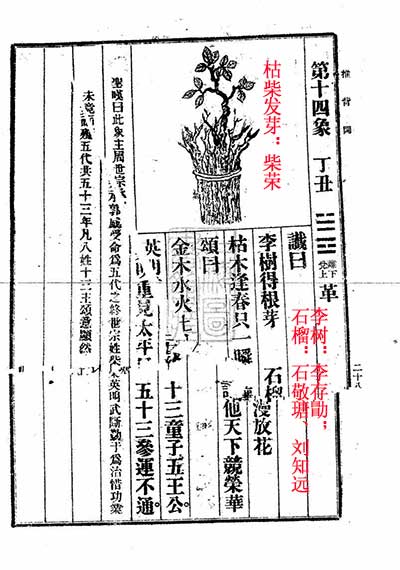 推背圖
二十八
第十四象 丁丑 ䷰ 離下兌上 革
讖曰
李樹得根芽 石榴漫放花
枯木逢春只一瞬 他天下競榮華
頌曰
金木水火 十三童子五王公。
英明重 太平 五十三參運不通。
聖嘆曰此象主周世宗承郭威受命爲五代之終世宗姓柴 英明武斷勤于爲治惜功業
未竟 五代共五十三年凡八姓十三主頌意顯然
枯柴发芽：柴荣
李树：李存勖；
石榴：石敬瑭、刘知远